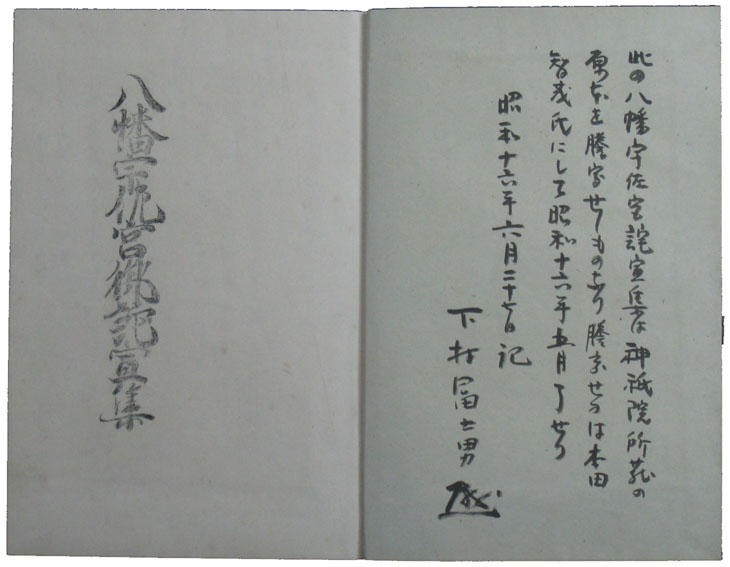 此の八幡宇佐宮託宣集は神祇院所蔵の
原本を謄写せしものなり謄写せるは本田
智茂氏にして昭和十六年五月了せり
昭和十六年六月二十七日記
下村冨士男
八幡宇佐宮御託宣集